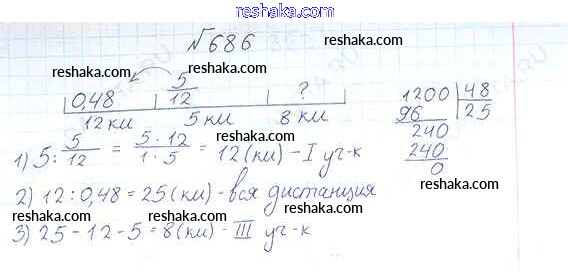 reshaka.com
№686
reshaka.com
reshaka.com
reshaka.com
0,48 5/12 ?
12 км 5 км 8 км
1200 | 48
96 25
240
240
0
reshaka.com
reshaka.com
1) 5 : 5/12 = 5·12/1·5 = 12 (км) – I уч-к
reshaka.com
reshaka.com
2) 12 : 0,48 = 25 (км) - вся дистанция
reshaka.com
reshaka.com
3) 25 - 12 - 5 = 8 (км) - III уч-к
reshaka.com
reshaka.com